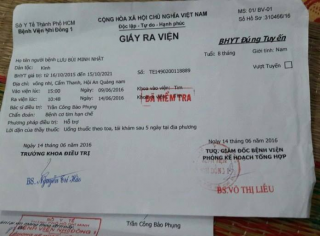 Sở Y Tế Thành Phố HCM
Bệnh Viện Nhi Đồng 1
CỘNG HÒA XÃ HỘI CHỦ NGHĨA VIỆT NAM
Độc lập - Tự do - Hạnh phúc
MS: 01/ BV-01
Số Hồ Sơ: 310458/16
GIẤY RA VIỆN
BHYT Đúng Tuyến
Họ tên người bệnh LƯU BÙI MINH NHẬT
Tuổi: 8 tháng
Giới tính: Nam
Dân tộc: Kinh
BHYT giá trị: từ 16/10/2015 đến 15/10/2021
Số: TE1490000110689
Vượt Tuyến
Địa chỉ: vông nhi, Cẩm Thanh, Hội An Quảng nam
Vào viện lúc: 15:00
Ngày: 09/06/2016
Khoa vào viện: Tim
Ra viện lúc: 10:48
Ngày: 14/06/2016
ĐÃ KIỂM TRA
Bác sĩ điều trị: Trần Công Bảo Phụng
Chẩn đoán: Bệnh cơ tim hạn chế
Phương pháp điều trị: Hỗ trợ
Lời dặn của thầy thuốc: Uống thuốc theo toa, tái khám sau 5 ngày tại địa phương
Ngày 14 tháng 06 năm 2016
TRƯỞNG KHOA ĐIỀU TRỊ
Ngày 14 tháng 06 năm 2016
TUQ. GIÁM ĐỐC BỆNH VIỆN
PHÒNG KẾ HOẠCH TỔNG HỢP
BS. VÕ THỊ LIỄU
Trần Công Bảo Phụng